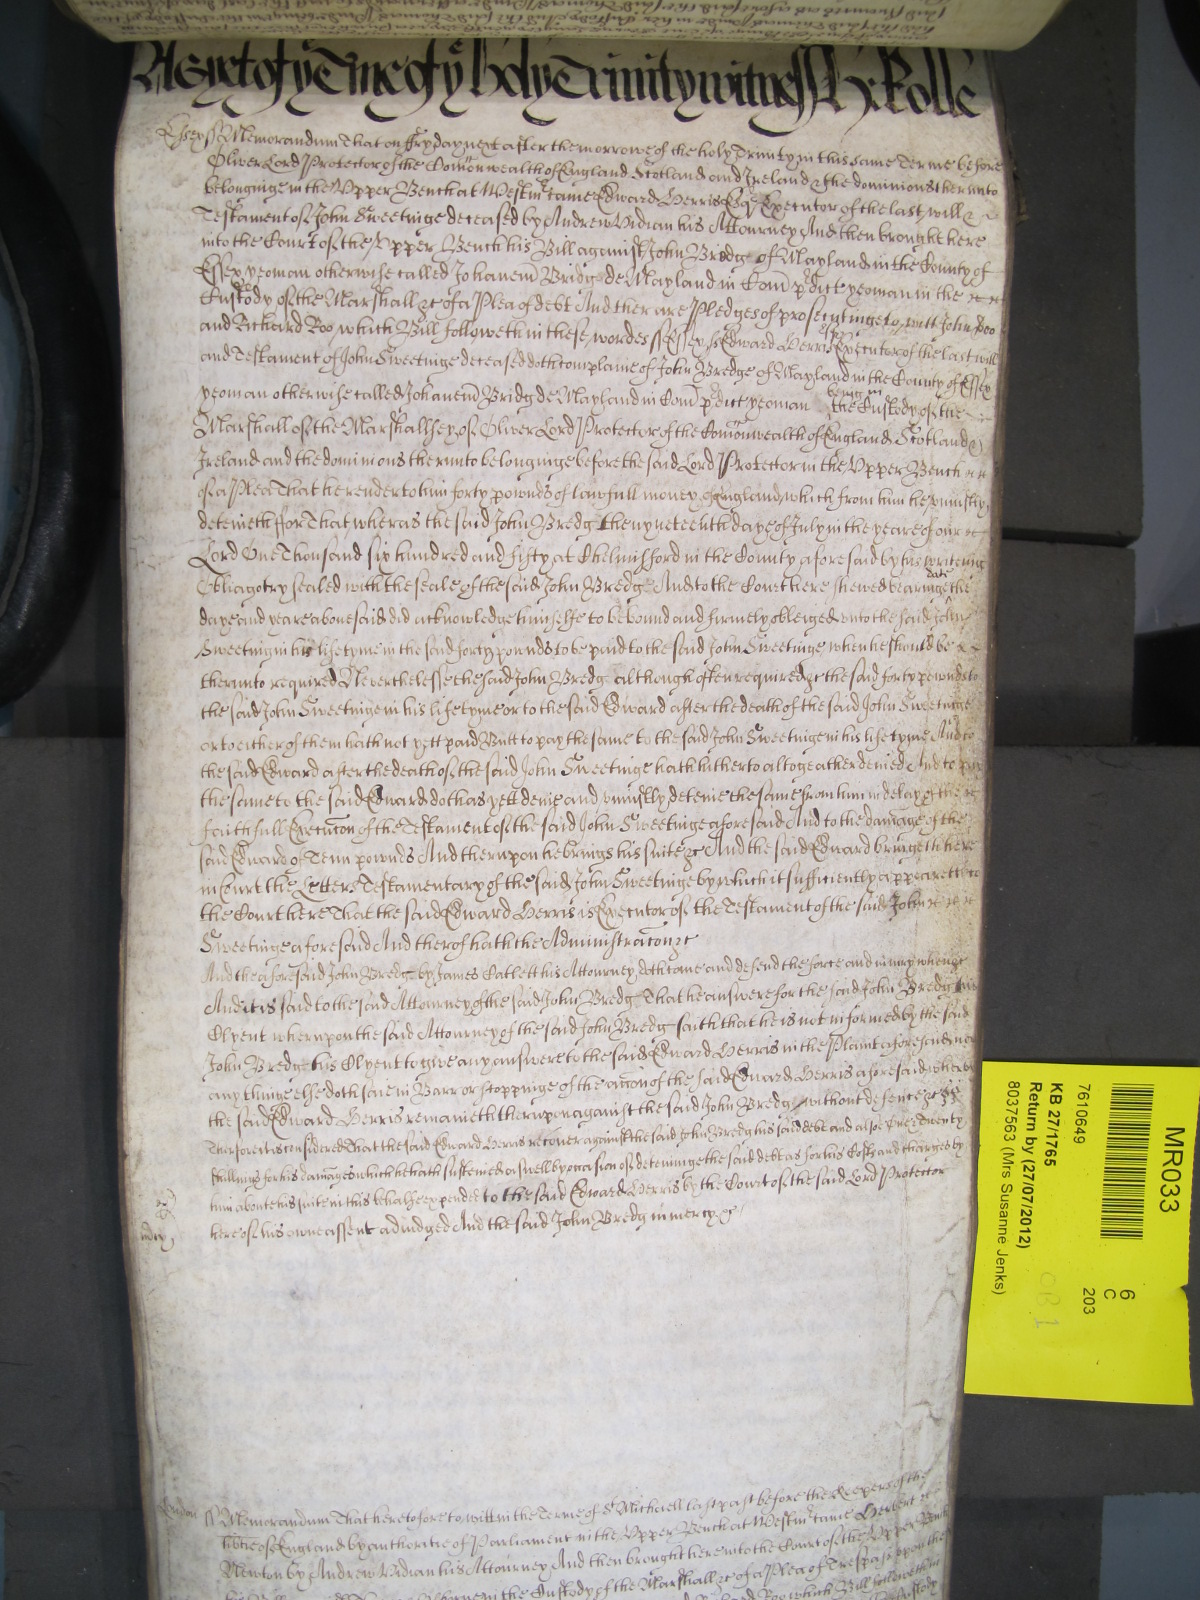 As yet of ye Tme of ye Holy Trinity witness H: Rolle
Essex ss Memorandum That on ffryday next after the morrowe of the holy Trinity in this same Terme before
Oliver Lord Protector of the Comonwealth of England Scotland and Ireland & the dominions therunto
belonginge in the Upper Bench at Westmr came Edward Herris Esqr Executor of the last will &
Testament of John Sweetinge deceased by Andrew Vidian his Attourney And then brought here
into the Court of the Upper Bench his Bill against John Bredg of Mayland in the County of
Essex yeoman otherwise called Johanem Bridg de Mayland in Com pdict yeoman in the
Custody of the Marshall &c of a Plea of debt And ther are Pledges of prosecutinge to witt John Doo
and Richard Roo which Bill followeth in these wordes ss Essex ss Edward Herris Esqr Executor of the last will
and Testament of John Sweetinge deceased doth complaine of John Bredge of Mayland in the County of Essex
yeoman otherwise called Johanem Bridg de Mayland in Com pdict yeoman being in the Custody of the
Marshall of the Marshallsey of Oliver Lord Protector of the Comonwealth of England Scotland &
Ireland and the dominions therunto belonginge before the said Lord Protector in the Upper Bench
of a Plea That he render to him forty pownds of lawfull money of England which from him he uniustly
deteineth ffor That wheras the said John Bredg the nyneteenth daye of July in the yeare of our
Lord One Thousand six hundred and fifty at Chelmisford in the County aforesaid by his writeing
Obligatory sealed with the seale of the said John Bredge And to the Court here shewed bearinge date the
daye and yeare abovesaid did acknowledge himselfe to be bound and firmely obleiged unto the said John
Sweeting in his life tyme in the said forty pownds to be paid to the said John Sweetinge when he should be
therunto required Neverthelesse the said John Bredg although often required &c the said forty pownds to
the said John Sweetinge in his life tyme or to the said Edward after the death of the said John Sweetinge
or to either of them hath not yett paid Butt to pay the same to the said John Sweetinge in his life tyme And to
the said Edward after the death of the said John Sweetinge hath hitherto altogeather denied And to pay
the same to the said Edward doth as yett denie and uniustly deteine the same from him in delay of the
faithfull Execucon of the Testament of the said John Sweetinge aforesaid And to the damage of the
said Edward of Tenn pownds And therupon he brings his suite &c And the said Edward bringeth here
in Court the Letters Testamentary of the said John Sweetinge by which it sufficiently appeareth to
the Court here That the said Edward Herris is Executor of the Testament of the said John
Sweetinge aforesaid And therof hath the Administracon &c
And the aforesaid John Bredg by James Catlett his Attorney doth come and defend the force and iniury when &c
And it is said to the said Attorney of the said John Bredg That he answere for the said John Bredg his
Clyent wherupon the said Attourney of the said John Bredg saith that he is not informed by the said
John Bredge his Clyent to give any answere to the said Edward Herris in the Plaint aforesaid nor
any thinge else doth saie in Barr or stoppinge of the accon of the said Edward Herris aforesaid wherby
the said Edward Herris remaineth therupon against the said John Bredg without defence &c
Therfore it is considered That the said Edward Herris recover against the said John Bredg his said debt and also Twenty
shillings for his damages which he hath susteined aswell by occasion of deteininge the said debt as for his Costs and charges by
him about his suite in this behalfe expended to the said Edward Herris by the Court of the said Lord Protector
here of his owne assent adiudged And the said John Bredg in mercy &c
London ss Memorandum That heretofore to witt in the Terme of St Michaell last past before the Keepers of the
libtie of England by authoritie of Parliament in the Upper Bench at Westmr came Herbert
Newton by Andrew Vidian his Attourney And then brought here into the Court of the Upper Bench
in the Custody of the Marshall &c of a Plea of Trespass upon the
MR033
7610649
KB 27/1765
Return by (27/07/2012)
8037563 (Mrs Susanne Jenks)
6
C
203